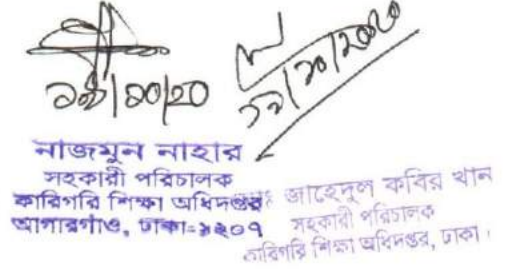 নাজমুন নাহার
সহকারী পরিচালক
কারিগরি শিক্ষা অধিদপ্তর
আগারগাঁও, ঢাকা-১২০৭
জাহেদুল কবির খান
সহকারী পরিচালক
কারিগরি শিক্ষা অধিদপ্তর, ঢাকা।